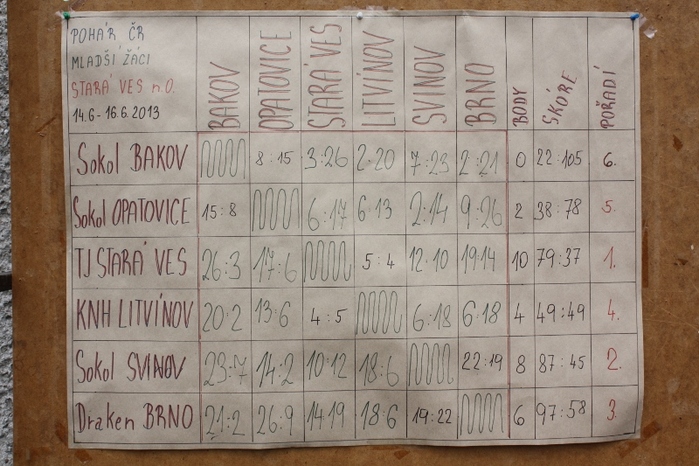 POHÁR ČR
MLADŠÍ ŽÁCI
STARÁ VES n.O.
14.6 - 16.6.2013
BAKOV OPATOVICE STARÁ VES LITVÍNOV SVINOV BRNO BODY SKÓRE POŘADÍ
Sokol BAKOV 8:15 3:26 2:20 7:23 2:21 0 22:105 6.
Sokol OPATOVICE 15:8 6:17 6:13 2:14 9:26 2 38:78 5.
TJ STARÁ VES 26:3 17:6 5:4 12:10 19:14 10 79:37 1.
KNH LITVÍNOV 20:2 13:6 4:5 6:18 6:18 4 49:49 4.
Sokol SVINOV 23:7 14:2 10:12 18:6 22:19 8 87:45 2.
Draken BRNO 21:2 26:9 14:19 18:6 19:22 6 97:58 3.